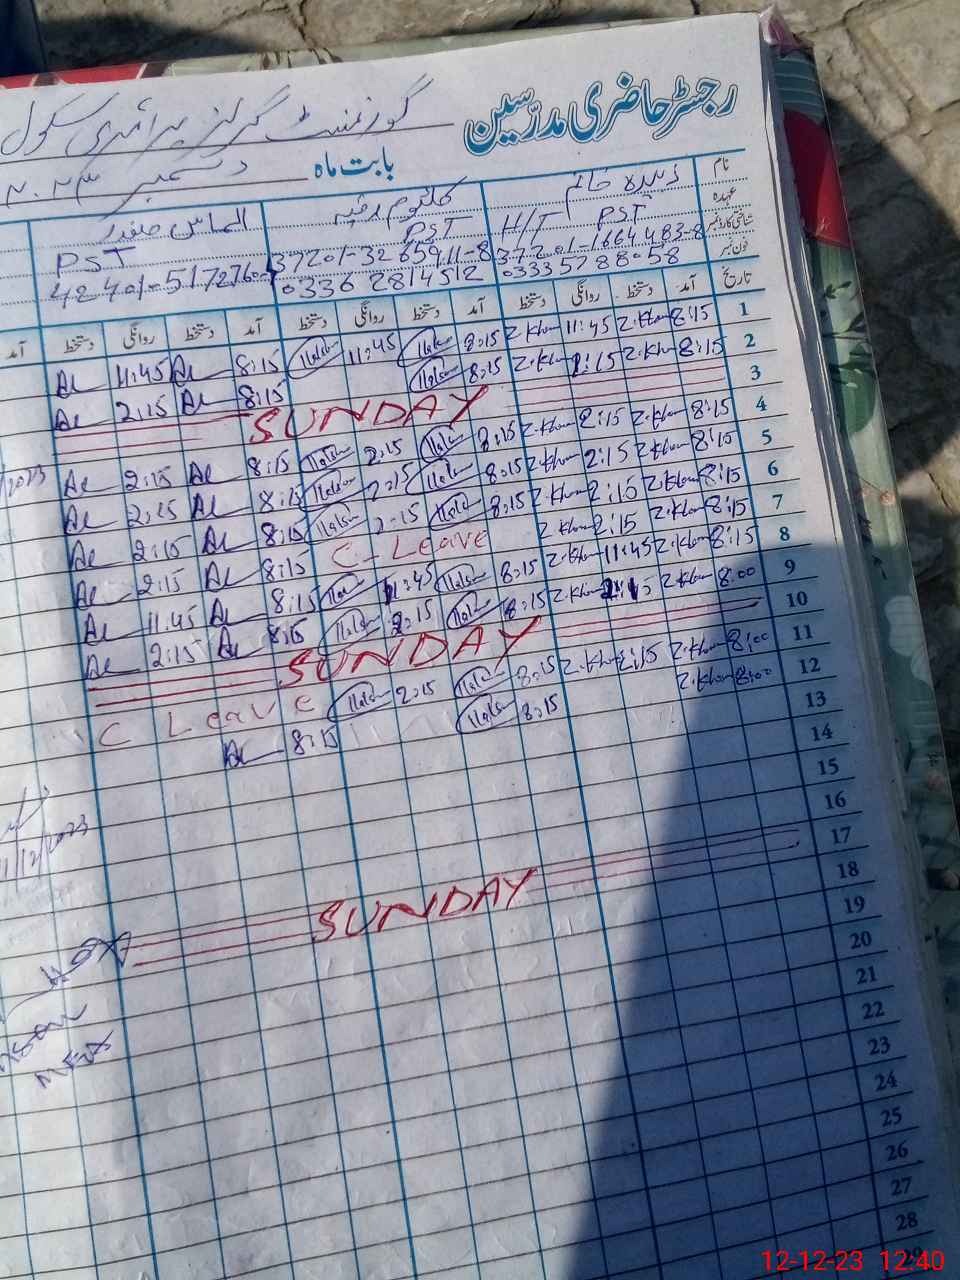 رجسٹر حاضری مدرسین گورنمنٹ گرلز پرائمری سکول
بابت ماہ دسمبر ۲۰۲۳
نام زبیدہ خانم کلثوم رقیہ الماس صفدر
عہدہ PST H/T PST PST
شناختی کارڈ نمبر 37201-1664483-8 37201-3265911-8 42401-5172760-
فون نمبر 03335788058 03362814512
تاریخ آمد دستخط روانگی دستخط آمد دستخط روانگی دستخط آمد دستخط روانگی دستخط آمد
1 8:15 Z.Khan 11:45 Z.Khan 8:15 11:45 8:15 11:45
2 8:15 Z.Khan 1:15 Z.Khan 8:15 8:15 2:15
3 SUNDAY
4 8:15 Z.Khan 2:15 Z.Khan 8:15 2:15 8:15 2:15
5 8:15 Z.Khan 2:15 Z.Khan 8:15 2:15 8:15 2:15
6 8:15 Z.Khan 2:15 Z.Khan 8:15 2:15 8:15 2:15
7 8:15 Z.Khan 2:15 Z.Khan C-Leave 8:15 2:15
8 8:15 Z.Khan 11:45 Z.Khan 8:15 11:45 8:15 11:45
9 8:00 Z.Khan 2:15 Z.Khan 8:15 2:15 8:15 2:15
10 SUNDAY
11 8:00 Z.Khan 2:15 Z.Khan 8:15 2:15 C Leave
12 8:00 Z.Khan 8:15 8:15
13
14
15
16
17 SUNDAY
18
19
20
21
22
23
24
25
26
27
28
12-12-23 12:40